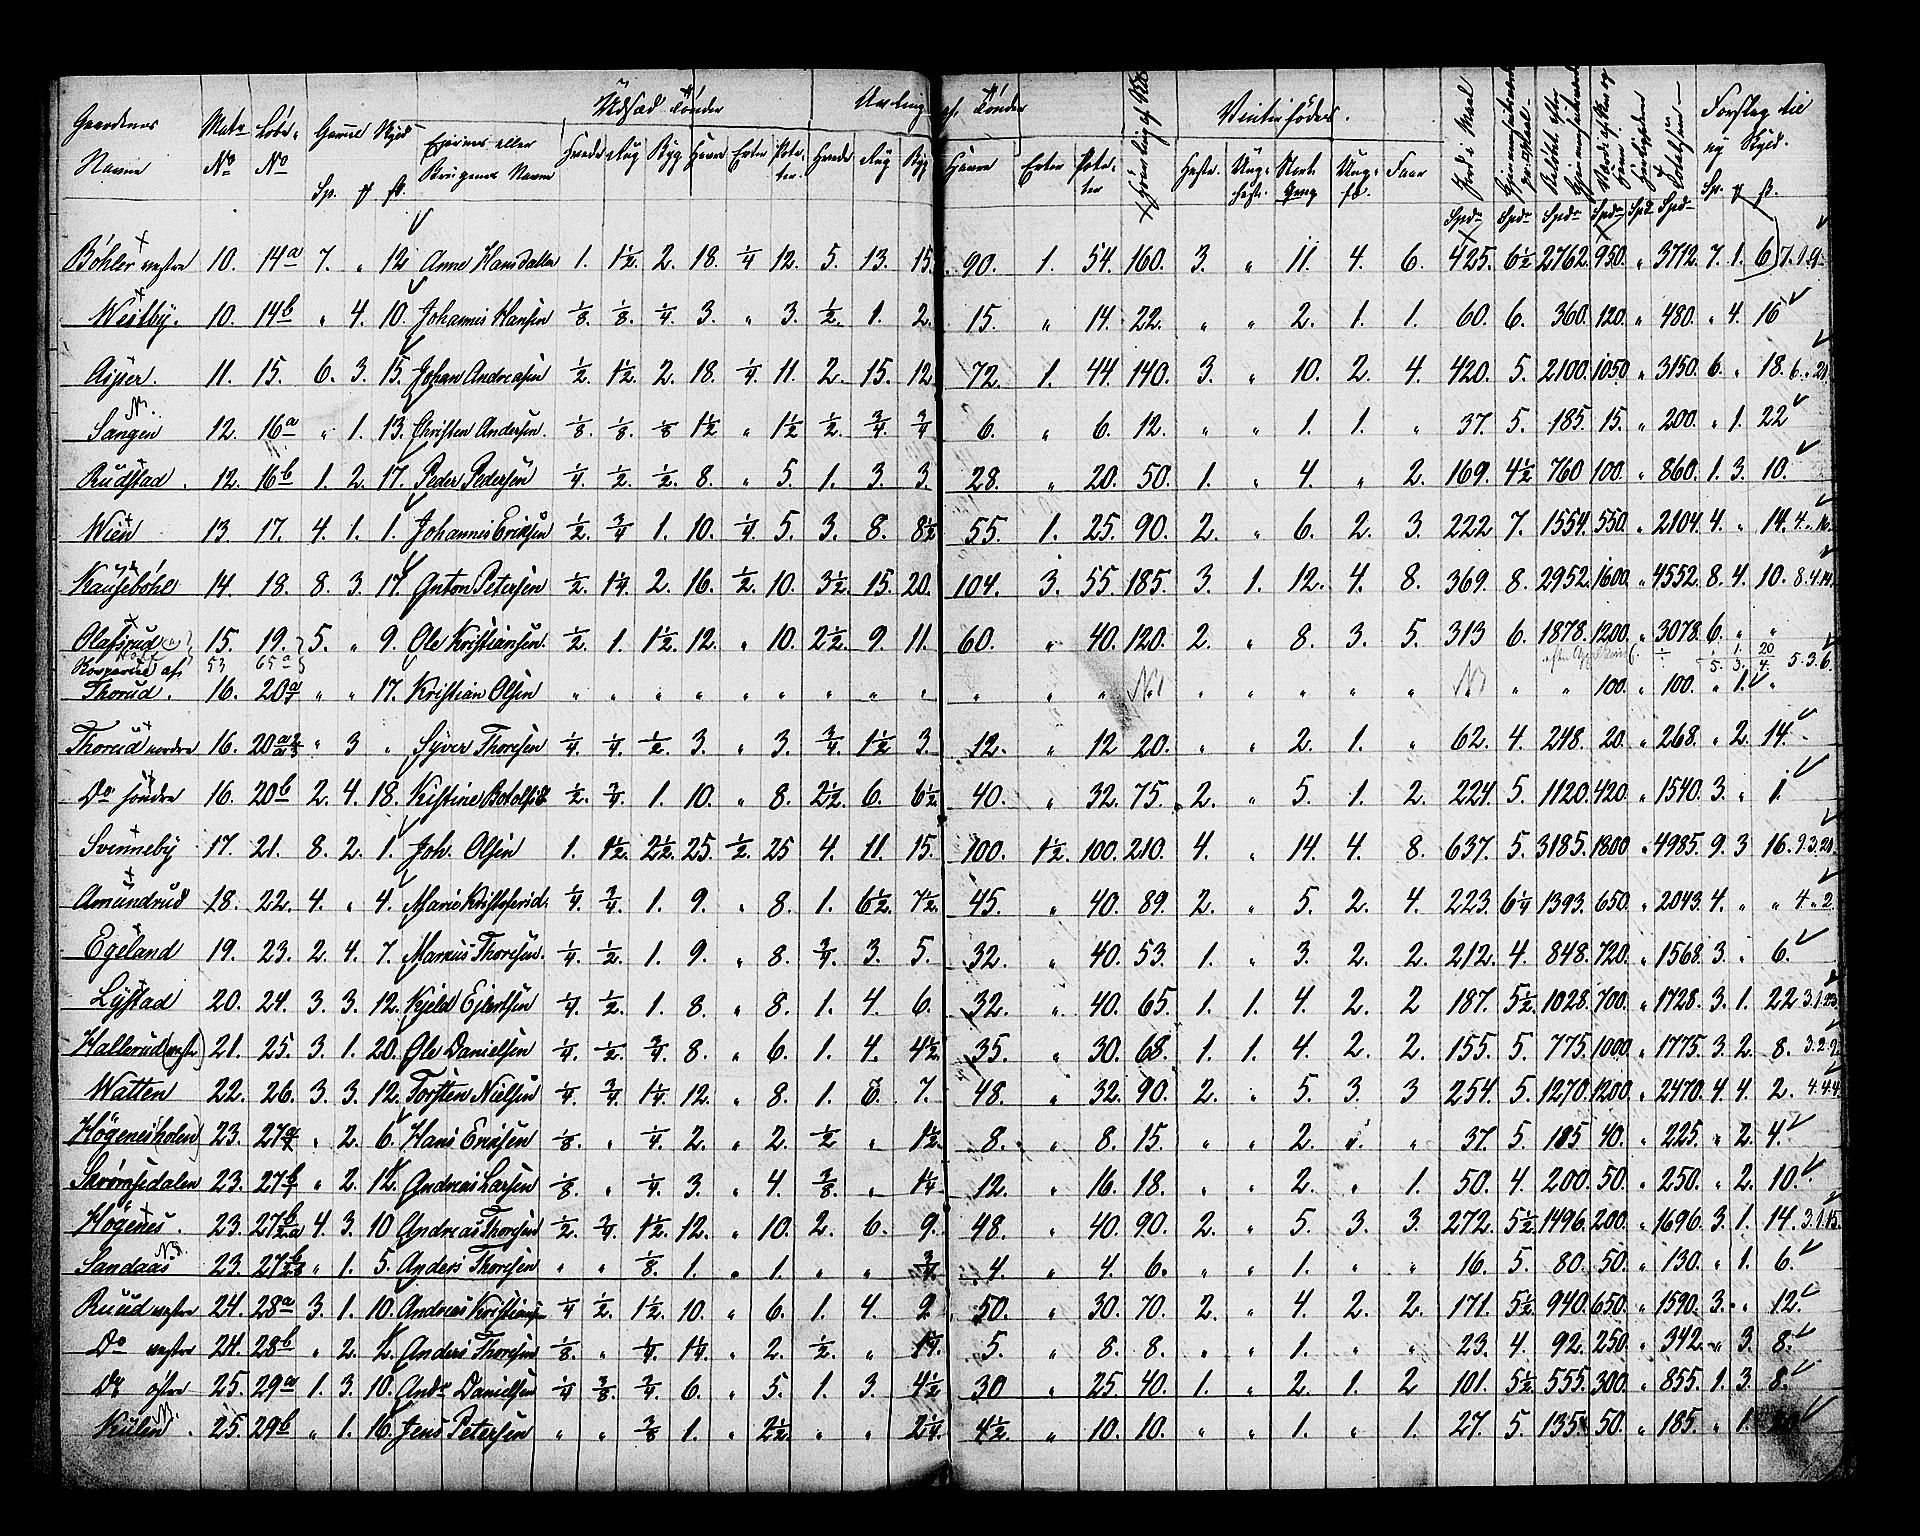 Gaardenes Navne Matr No Löbe No Gammel Skyld Sp. ℔ ß. Eiernes eller Brugernes Navne Udsæd Tönder Hvede Rug Byg Havre Erter Poteter Avling af Tönder Hvede Rug Byg Havre Erter Poteter Vinterföder. Heste Ung-heste Ung-f. Faar Jord i Maal Totalsum Forslag til ny Skyld. Sp. ℔ ß.
Böhler vestre 10. 14a 7. " 12 Anne Hansdatter 1. 1½. 2. 18. ¼ 12. 5. 13. 15. 90. 1. 54. 160. 3. " 11. 4. 6. 425. 6½ 2762. 950. " 3712. 7. 1. 6 7.1.9
Westby. 10. 14b " 4. 10. Johannes Hansen ⅛. ⅛. ¼. 3. " 3. ½. 1. 2. 15. " 14. 22. " " 2. 1. 1. 60. 6. 360. 120. " 480. " 4. 16
Asper. 11. 15. 6. 3. 15. Johan Andreasen ½. 1½. 2. 18. ¼. 11. 2. 15. 12 72. 1. 44. 140. 3. " 10. 2. 4. 420. 5. 2100. 1050 " 3150. 6. " 18. 6. "
Sangen 12. 16a " 1. 13. Christen Andersen. ⅛. ⅛. ⅛ 1½ " 1½ ½. ¾. ¾ 6. " 6. 12. " " 1. 1. " 37. 5. 185. 15. " 200. " 1. 22
Rudstad. 12. 16b 1. 2. 17. Peder Pedersen ¼. ½. ½. 8. " 5. 1. 3. 3. 28. " 20. 50. 1. " 4. " 2. 169. 4½ 760 100. " 860. 1. 3. 10.
Wien 13. 17. 4. 1. 1. Johannes Eriksen ½. ¾ 1. 10. ¼. 5. 3. 8. 8½ 55. 1. 25. 90. 2. " 6. 2. 3. 222 7. 1554. 550. " 2104. 4. " 14. 4. " 16
Kauseböhl 14. 18. 8. 3. 17. Anton Petersen ½. 1¼. 2. 16. ½. 10. 3½. 15. 20. 104. 3. 55. 185. 3. 1. 12. 4. 8. 369. 8. 2952. 1600. " 4552. 8. 4. 10. 8.4.14
Olafsrud 15. 19. 5. " 9. Ole Kristiansen. ½. 1. 1½. 12. " 10. 2½. 9. 11. 60. " 40. 120. 2. " 8. 3. 5. 313 6. 1878. 1200. " 3078. 6. " "
53 65a 5. 3. 4. 5.3.6.
Thorud. 16. 20a " " 17. Kristian Olsen " " " " " " " " " " " " " " " " " " " " 100. " 100. " 1. "
Thorud nordre 16. 20a " 3 " Syver Thoresen ¼. ¼. ½. 3. " 3. ¾. 1½ 3. 12. " 12 20. " " 2. 1. " 62. 4. 248. 20. " 268. " 2. 14.
Do söndre 16. 20b 2. 4. 18. Kristine Botolfsd. ½. ¾. 1. 10. " 8. 2½. 6. 6½ 40. " 32. 75. 2. " 5. 1. 2. 224. 5. 1120. 420. " 1540. 3. " 1.
Svenneby 17. 21. 8. 2. 1. Joh. Olsen 1. 1½. 2½. 25. ½. 25 4. 11. 15. 100. 1½. 100. 210. 4. " 14. 4. 8. 637. 5. 3185. 1800 " 4985. 9. 3 16. 9.3.21
Amundrud 18. 22. 4. " 4. Marie Kristofersd. ¼. ¾. 1. 9. " 8. 1. 6½. 7½. 45. " 40. 89. 2. " 5. 2. 4. 223. 6¼ 1393. 650. " 2043. 4. " " 4 " 2
Egeland 19. 23. 2. 4. 7. Marcus Thoresen. ¼. ½. 1. 9. " 8. ¾. 3. 5. 32. " 40. 53. 1. " 3. 2. 2. 212. 4. 848. 720. " 1568. 3. " 6.
Lystad 20. 24. 3. 3. 12. Kjeld Ejlertsen ¼. ½. 1. 8. " 8. 1. 4. 6. 32. " 40. 65. 1. 1. 4. 2. 2 187. 5½. 1028. 700. " 1728. 3. 1. 22 3.1.23
Hallerud (vestre) 21. 25. 3. 1. 20. Ole Danielsen ¼. ½. ¾. 8. " 6. 1. 4. 4½. 35. " 30. 68. 1. 1. 4. 2. 2. 155. 5. 775. 1000. " 1775. 3. 2. 8. 3.2.9
Watten 22. 26. 3. 3. 12. Torsten Nielsen ¼. ¾. 1¼. 12. " 8. 1. 6. 7. 48. " 32. 90. 2. " 5. 3. 3 254. 5. 1270. 1200. " 2470. 4. 4. 2. 4.4.4
Högenes (holen) 23. 27a " 2. 6. Hans Eriksen ⅛. " ¼. 2. " 2. ½ " 1½ 8. " 8. 15. " " 2. " " 37. 5. 185 40. " 225. " 2. 4.
Strömsedalen 23. 27b " 2. 12. Andreas Larsen ⅛. " ¼. 3. " 4. ⅜. " 1¼. 12. " 16. 18. " " 2. " 1. 50. 4. 200. 50. " 250. " 2. 10.
Högenes. 23. 27b 4. 3. 10 Andreas Thoresen ½. ¾. 1½. 12. " 10. 2. 6. 9. 48. " 40. 90. 2. " 5. 3. 3. 272. 5½ 1496. 200. " 1696. 3. 1. 14. 3.1.15
Sandaas 23. 27b " 1. 5. Anders Thoresen " " ⅛. 1. " 1. " " ¾. 4. " 4. 6. " " 1. " " 16. 5. 80. 50. " 130. " 1. 6.
Ruud vestre 24. 28a 3. 1. 10. Andreas Kristians. ¼ ½. 1½. 10. " 6. 1. 4. 9. 50. " 30. 70. 2. " 4. 2. 2. 171. 5½ 940. 650. " 1590. 3. " 12.
Do vestre 24. 28b " 2. 2. Anders Thoresen ⅛. " ¼. 1¼. " 2. ½. " 1¼. 5. " 8. 8. " " 1. " " 23. 4. 92. 250. " 342. " 3. 8.
Do östre 25. 29a 1. 3. 10. Andr Danielsen ¼ ⅜. ¾. 6. " 5. 1. 3. 4½ 30 " 25. 40. 1. " 2. 1. 2 101. 5½. 555. 300. " 855. 1. 3. 8.
Kulen. 25. 29b " 1. 16. Jens Petersen " " ⅜ 1. " 2½. " " 2¼. 4½. " 10. 10. " " 1. " 1. 27. 5. 135. 50. " 185. " 1.